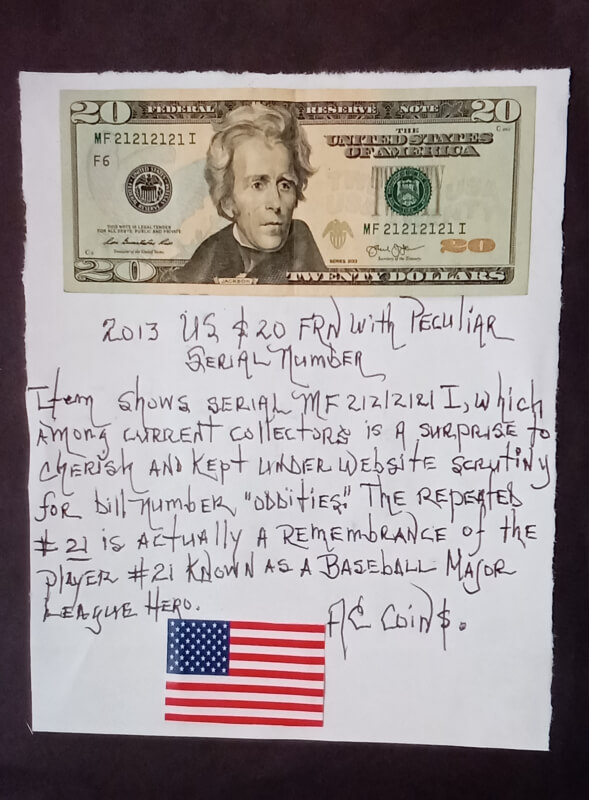 20 FEDERAL RESERVE NOTE 20
THE
UNITED STATES
OF AMERICA
MF 21212121 I
F6
THIS NOTE IS LEGAL TENDER
FOR ALL DEBTS, PUBLIC AND PRIVATE
MF 21212121 I
Treasurer of the United States.
SERIES 2013
Secretary of the Treasury.
20
20 JACKSON TWENTY DOLLARS
2013 US $20 FRN with Peculiar
Serial Number
Item shows serial MF 21212121 I, which
among current collectors is a surprise to
cherish and kept under website scrutiny
for bill number "oddities". The repeated
#21 is actually a remembrance of the
player #21 known as a Baseball Major
League Hero.
AC Coin$.